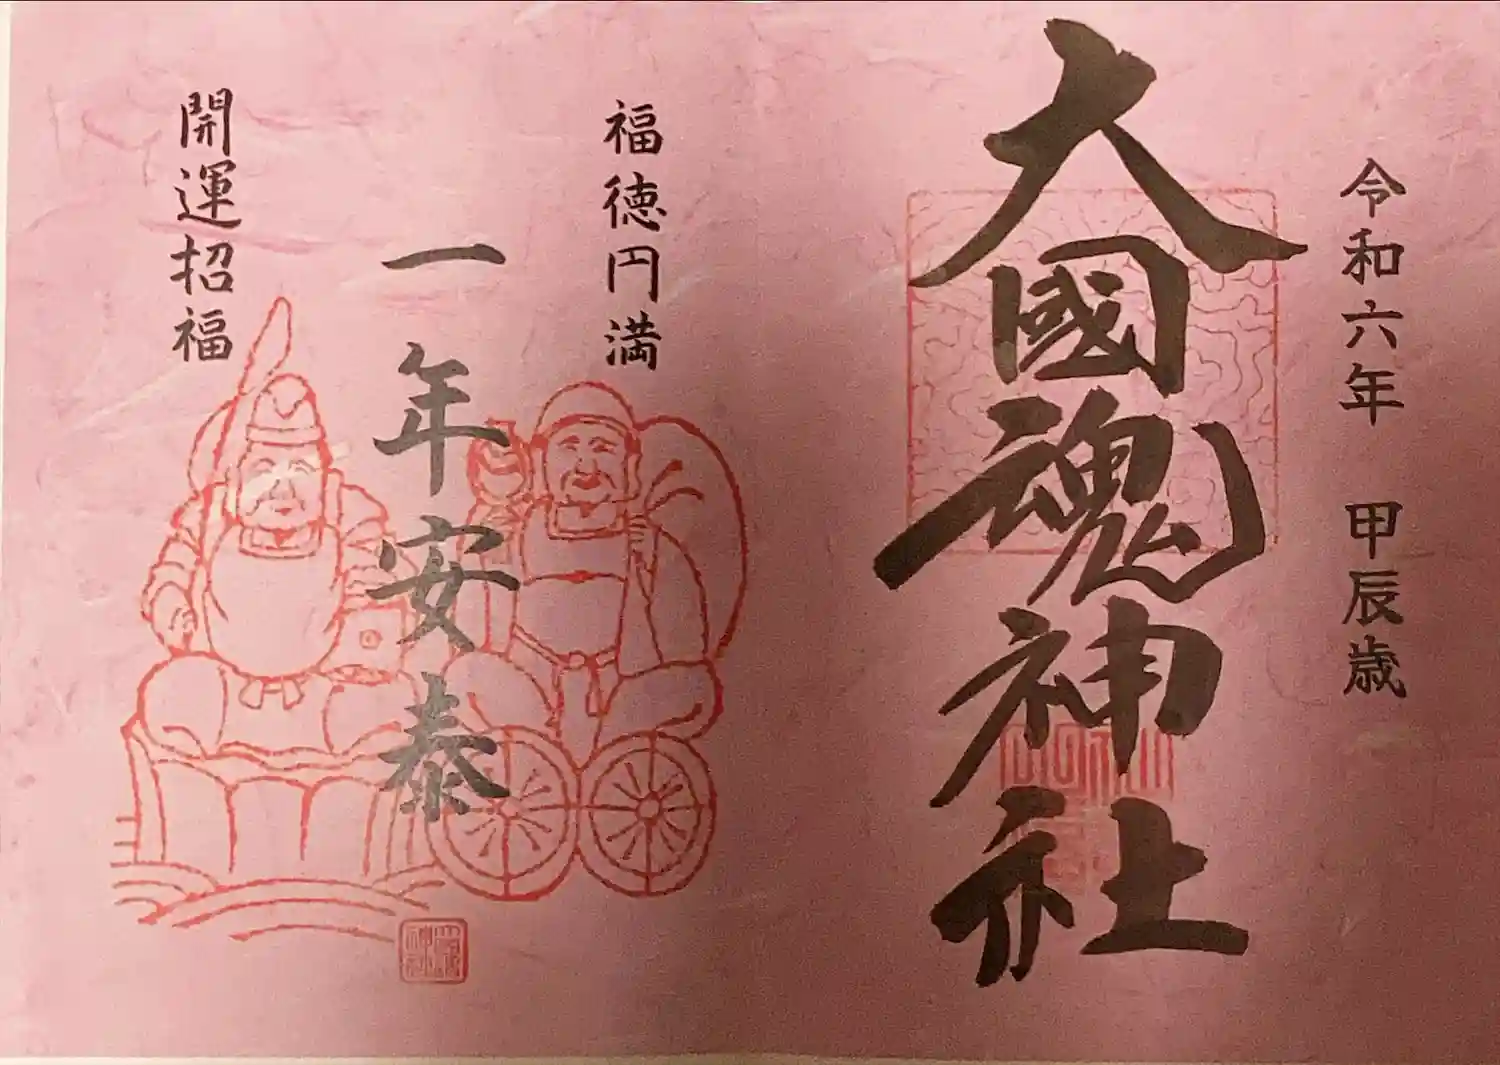 令和六年　甲辰歳
大國魂神社
福徳円満
一年安泰
開運招福